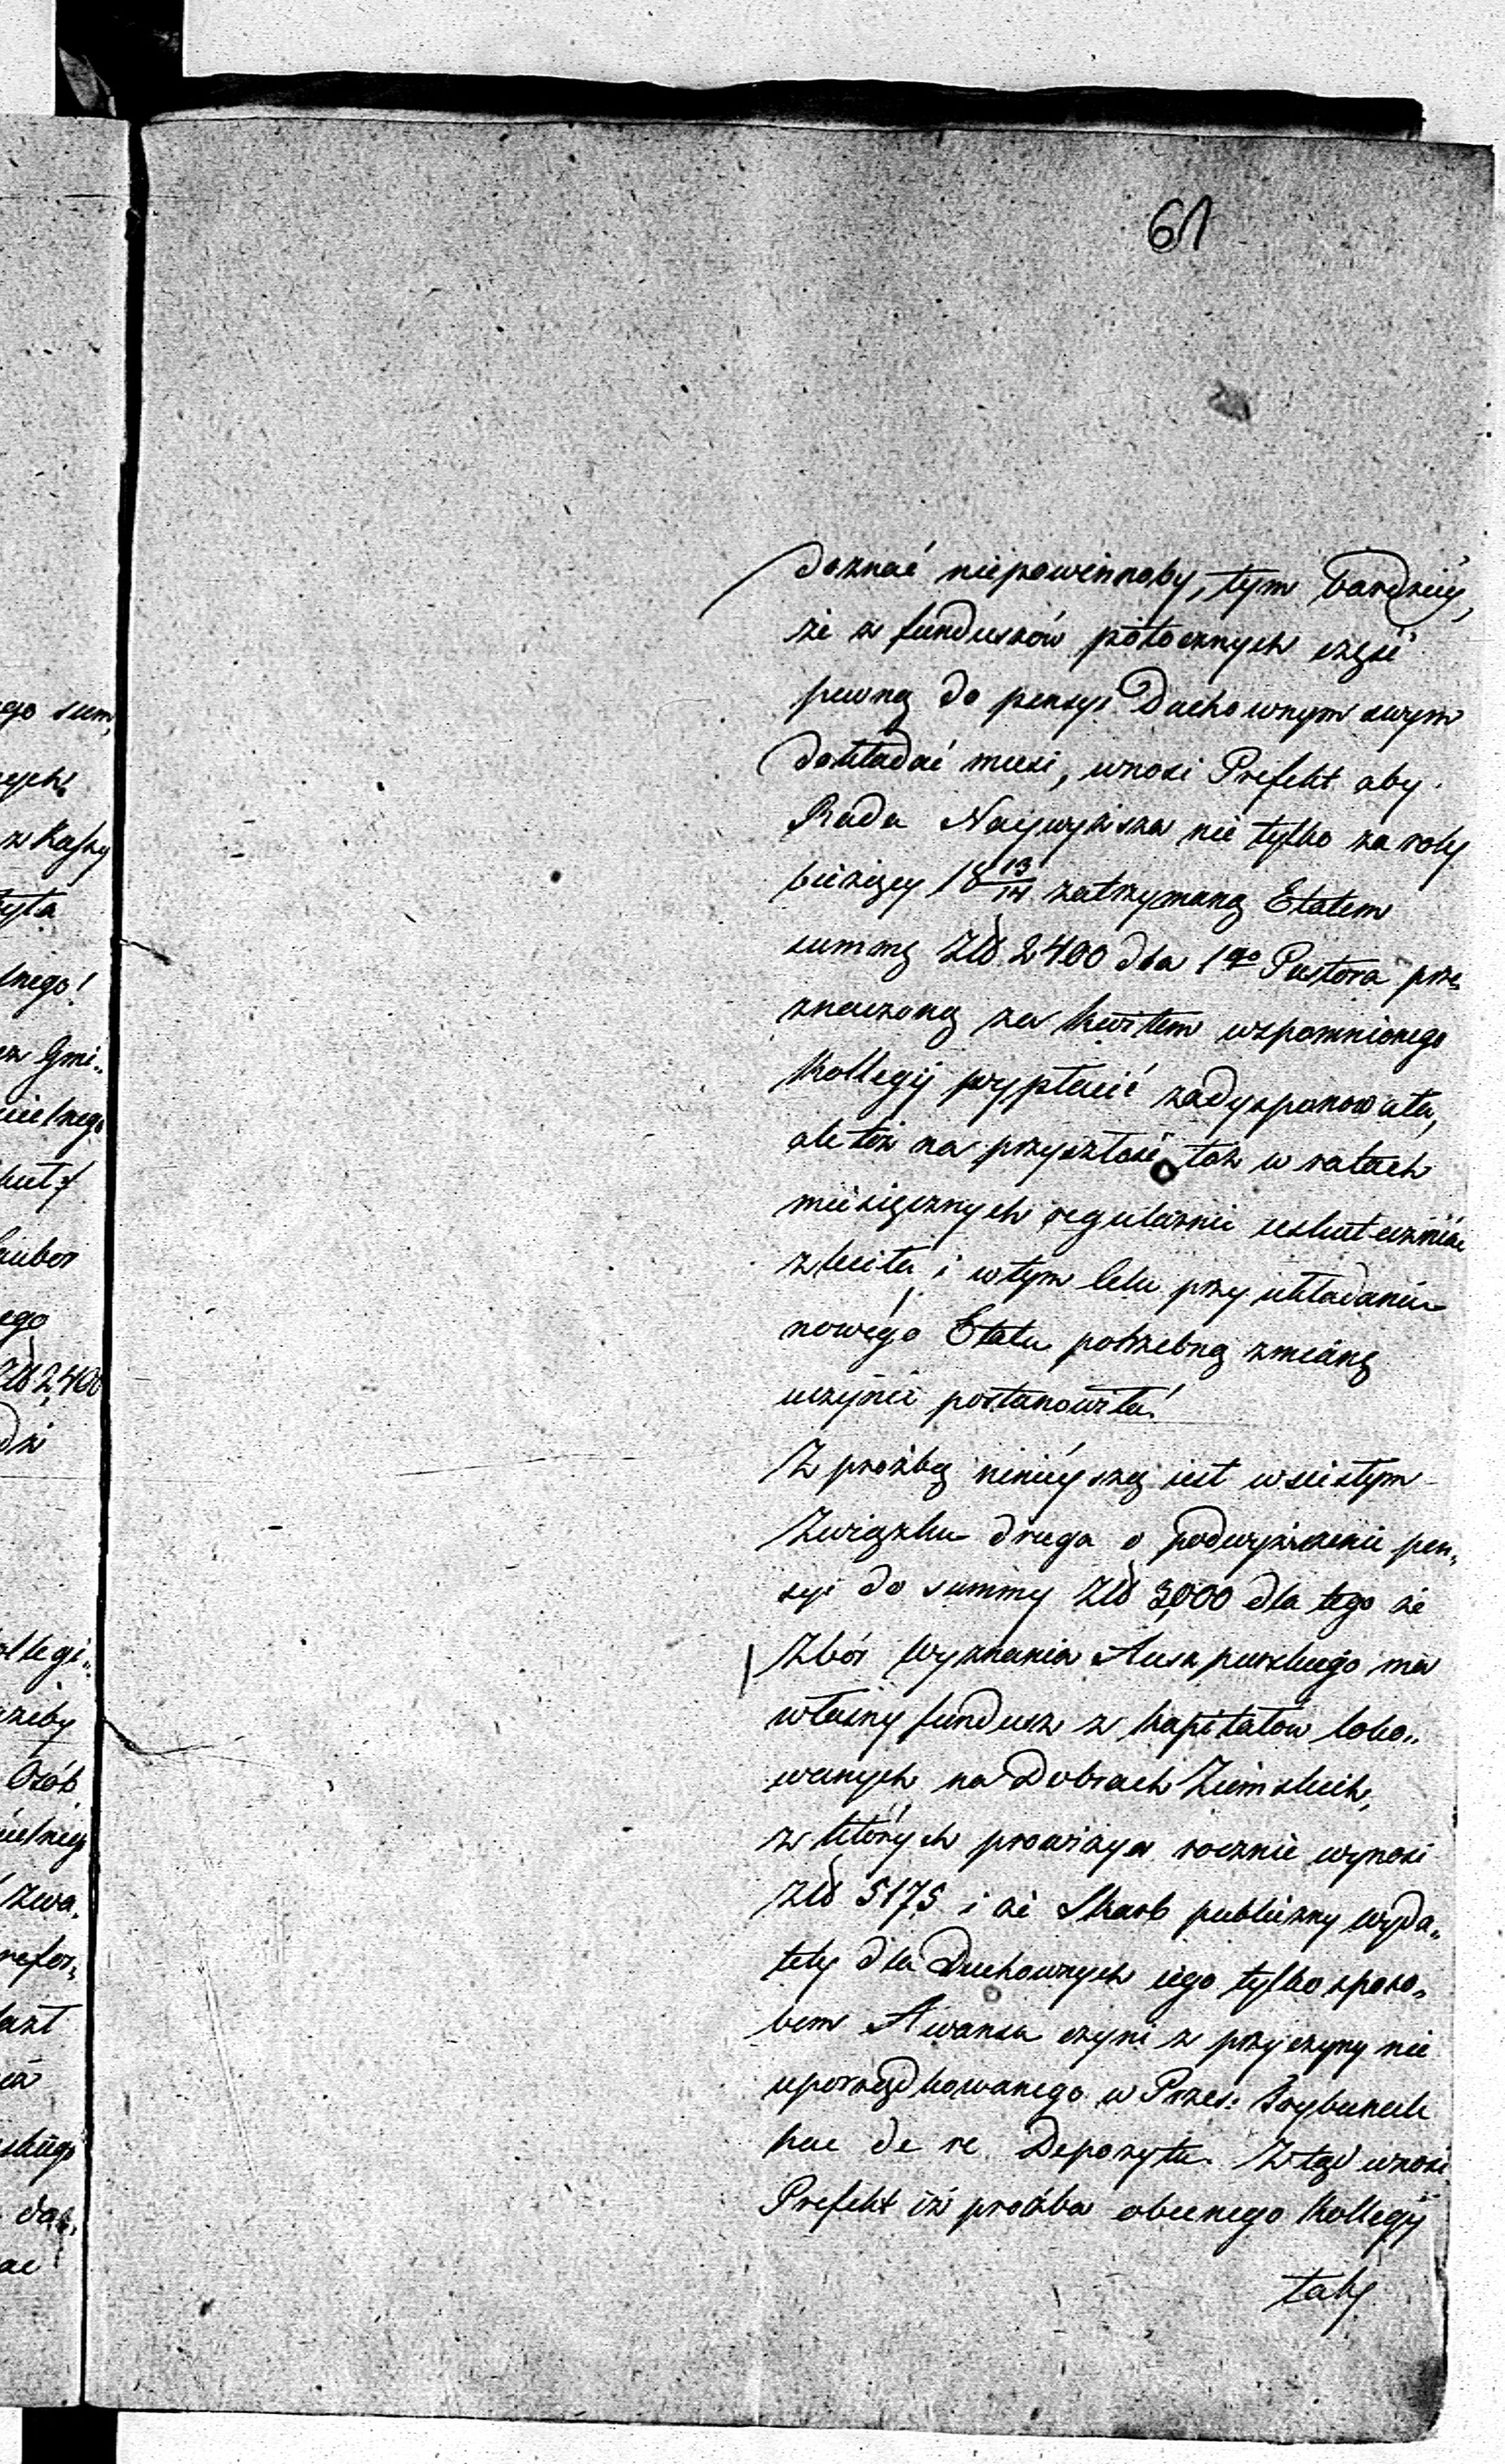 61
doznać niepowinnoby, tym bardziey,
że z funduszów potocznych część
pewną do pensyi Duchownym swym
dokładać musi, wnosi Prefekt aby
Rada Naywyższa nie tylko za roky
bieżący 18 13/14 zatrzymaną Etatem
summę Zł 2400 dla 1go Pastora prze,,
znaczoną za kwitem wspomnionego
Kollegij wypłacić zadysponowała,
ale też na przyszłość toż w ratach
miesięcznych regularnie uskuteczniać
zleciła i w tym celu przy układaniu
nowego Etatu potrzebną zmianę
uczynić postanowiła.
Z prozbą ninieyszą iest w scisłym
Związku druga o podwyższenie pen,,
syi do summy Zł 3,000 dla tego że
Zbór Wyznania Auszpurskiego ma
własny fundusz z kapitałów loko,,
wanych na Dobrach Ziemskich,
z których prowizya rocznie wynosi
Zł 5175 i że Skarb publiczny wyda,,
tki dla Duchownych iego tylko sposo,,
bem Awansu czyni z przyczyny nie
uporządkowanego w Przes: Trybunale
hac de re Depozytu. Ztąd wnosi
Prefekt iż proźba obecnego Kollegij
taky
ego sum,
nych
z Kassy
była
lnego!
ez Gmi,,
cielnego
ego
Zł 2,400
dzi
ollegi,,
Osób
zwa,
refor,